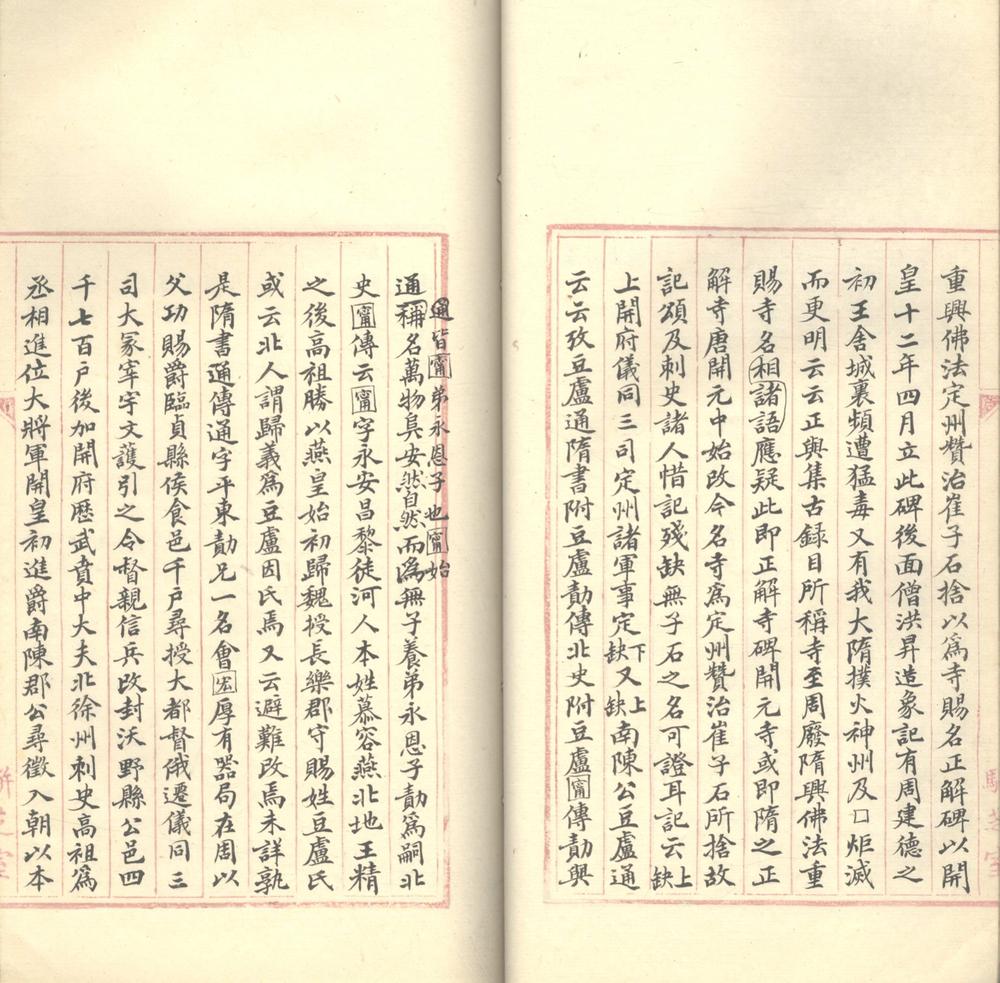 重興佛法定州贊治崔子石捨以爲寺賜名正解碑以開
皇十二年四月立此碑後面僧洪昇造象記有周建德之
初王舍城裏頻遭猛毒又有我大隋撲火神州及□炬滅
而更明云云正與集古録目所稱寺至周廢隋興佛法重
賜寺名相諸語應疑此即正解寺碑開元寺或即隋之正
解寺唐開元中始改今名寺爲定州贊治崔子石所捨故
記頌及刺史諸人惜記殘缺無子石之名可證耳記云上缺
上開府儀同三司定州諸軍事定下缺又上缺南陳公豆盧通
云云攷豆盧通隋書附豆盧勣傳北史附豆盧甯傳勣與
通皆甯弟永恩子也甯始
通稱名萬物臭安然自然而爲無子養弟永恩子勣爲嗣北
史甯傳云甯字永安昌黎徒河人本姓慕容燕北地王精
之後高祖勝以燕皇始初歸魏授長樂郡守賜姓豆盧氏
或云北人謂歸義爲豆盧因氏焉又云避難改焉未詳孰
是隋書通傳通字平東勣兄一名會宏厚有器局在周以
父功賜爵臨貞縣侯食邑千戶尋授大都督俄遷儀同三
司大冢宰宇文護引之令督親信兵改封沃野縣公邑四
千七百戶後加開府歷武賁中大夫北徐州刺史高祖爲
丞相進位大將軍開皇初進爵南陳郡公尋徵入朝以本